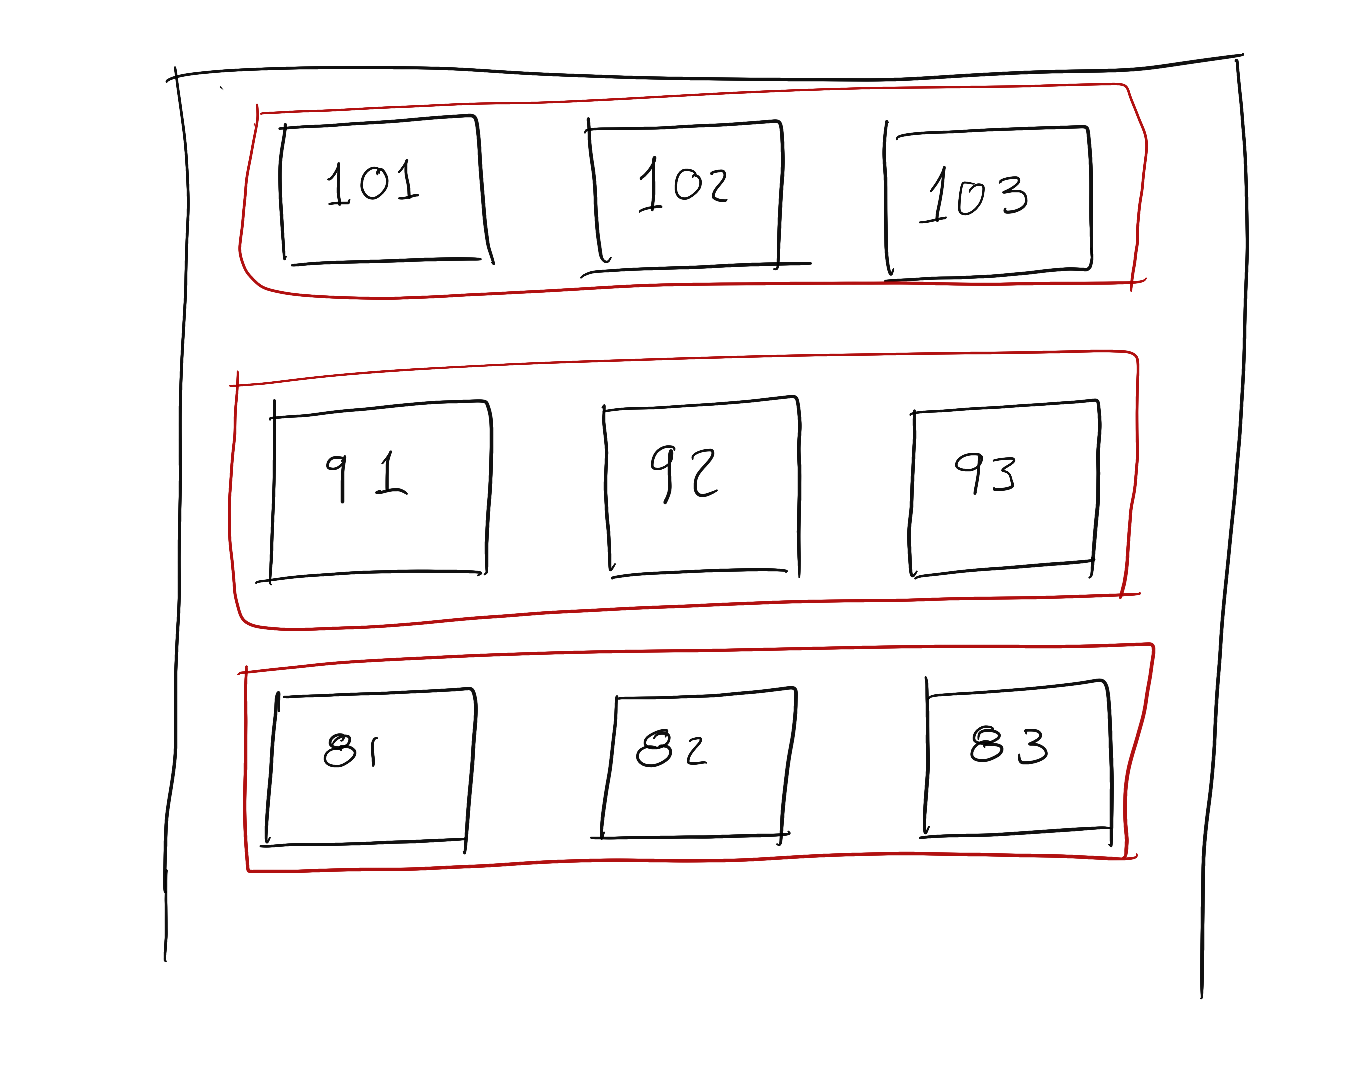 101 102 103
91 92 93
81 82 83